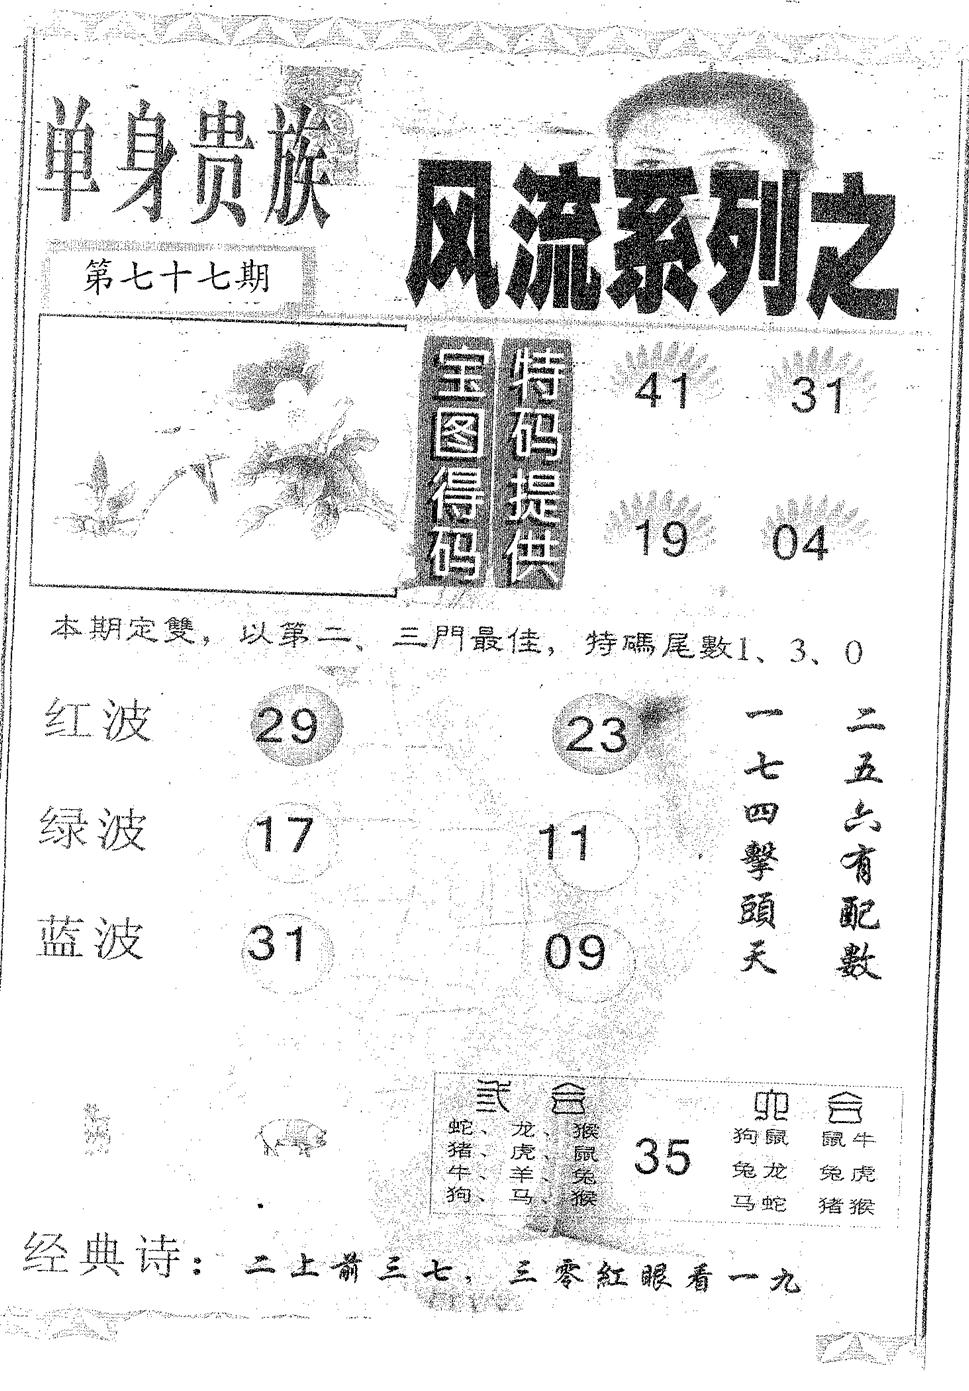 单身贵族
风流系列之
第七十七期
宝图得码
特码提供
41 31
19 04
本期定雙，以第二、三門最佳，特碼尾數1、3、0
红波 29 23
绿波 17 11
蓝波 31 09
一七四擊頭天
二五六有配數
弎合
蛇、龙、猴
猪、虎、鼠
牛、羊、兔
狗、马、猴
35
六合
狗鼠 鼠牛
兔龙 兔虎
马蛇 猪猴
经典诗：二上前三七，三零紅眼看一九